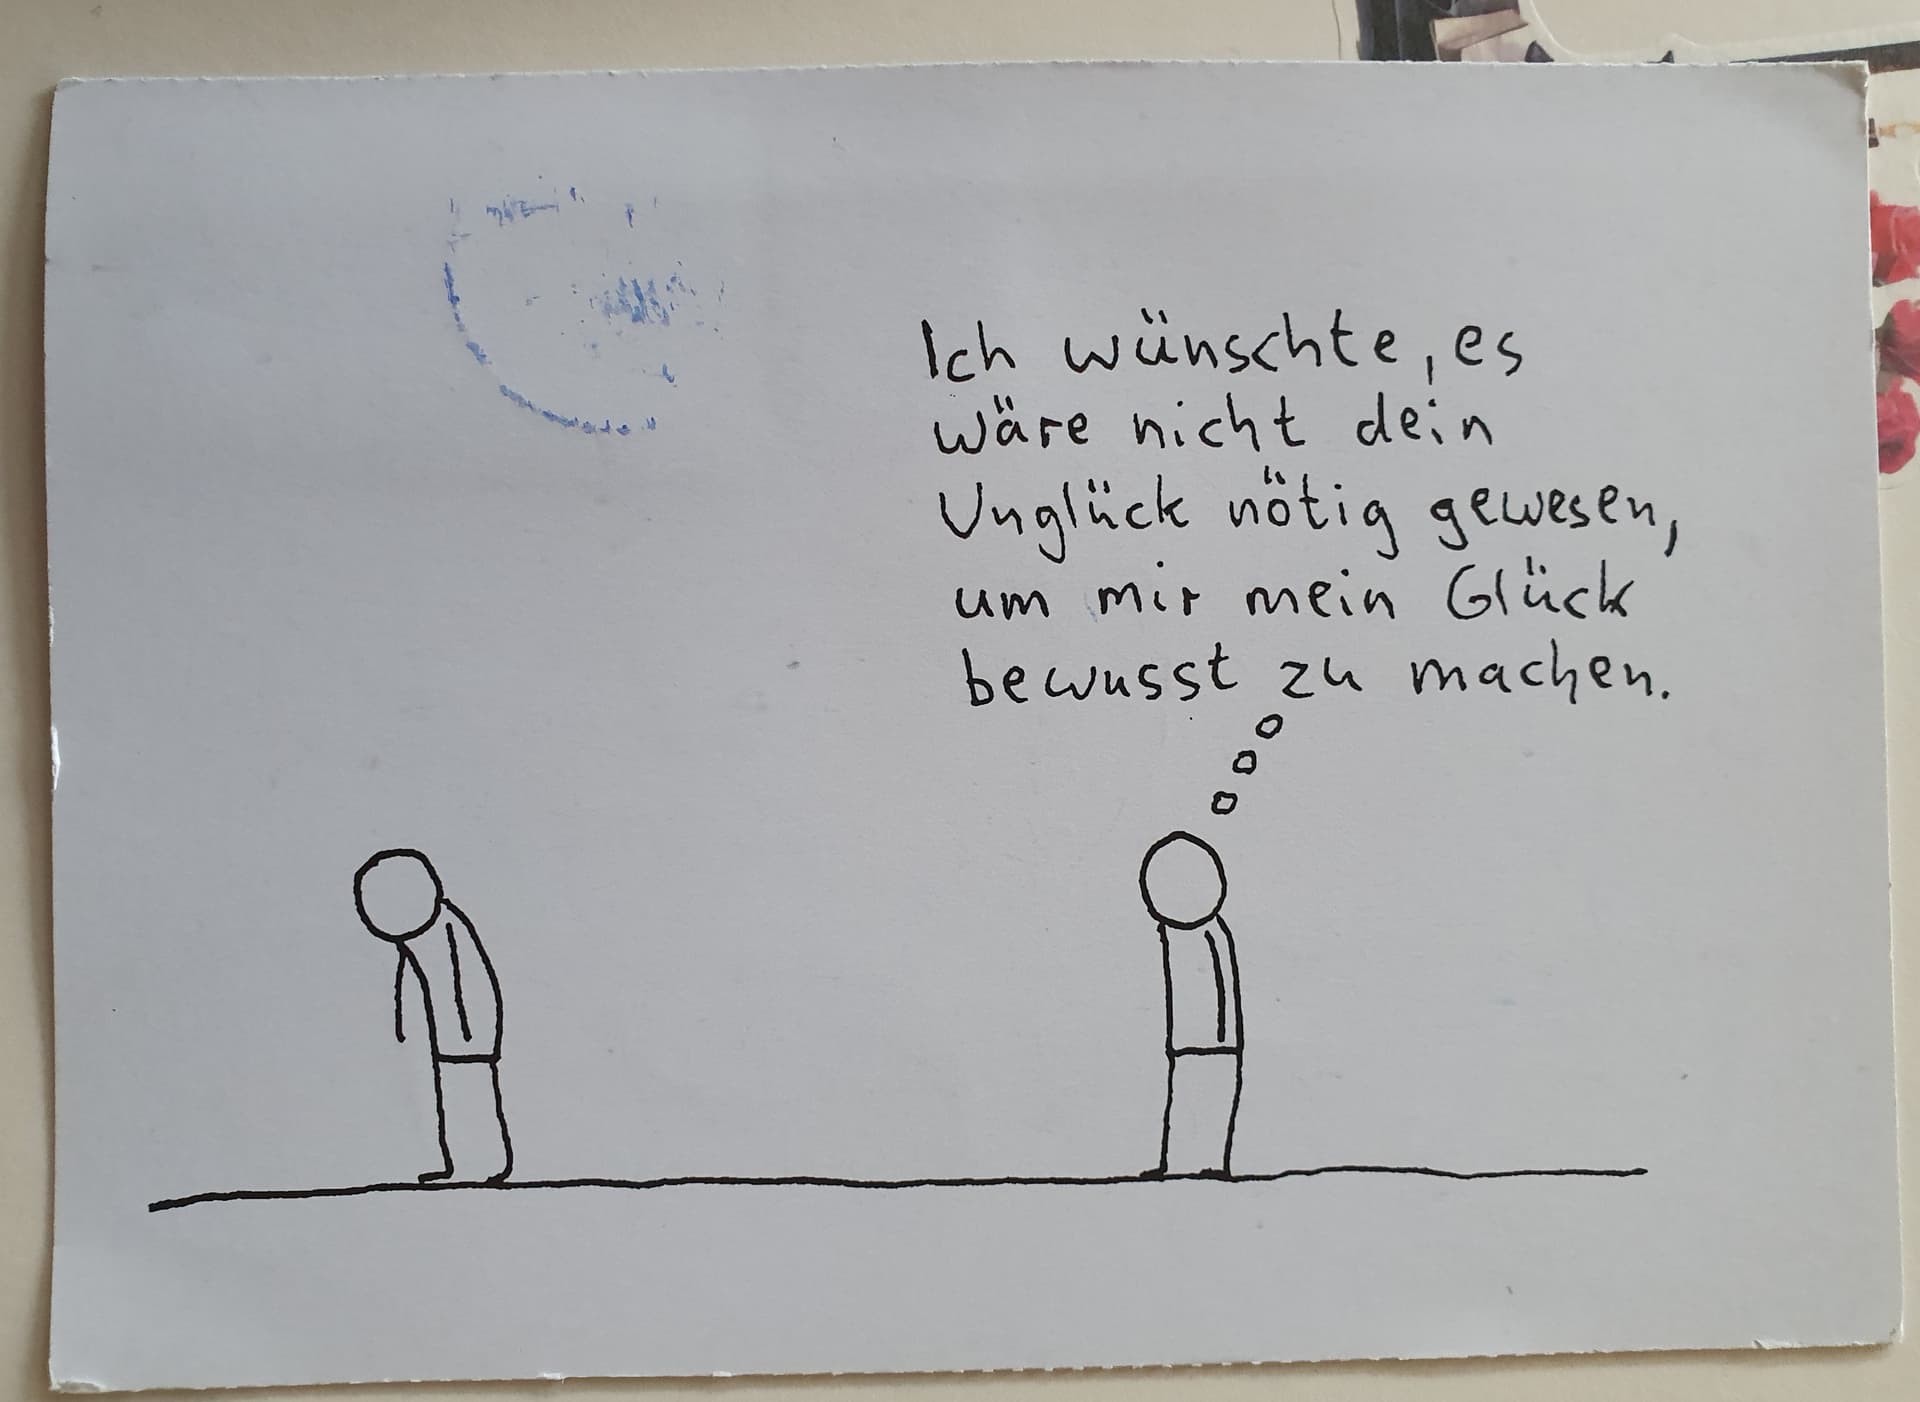 Ich wünschte, es
wäre nicht dein
Unglück nötig gewesen,
um mir mein Glück
bewusst zu machen.